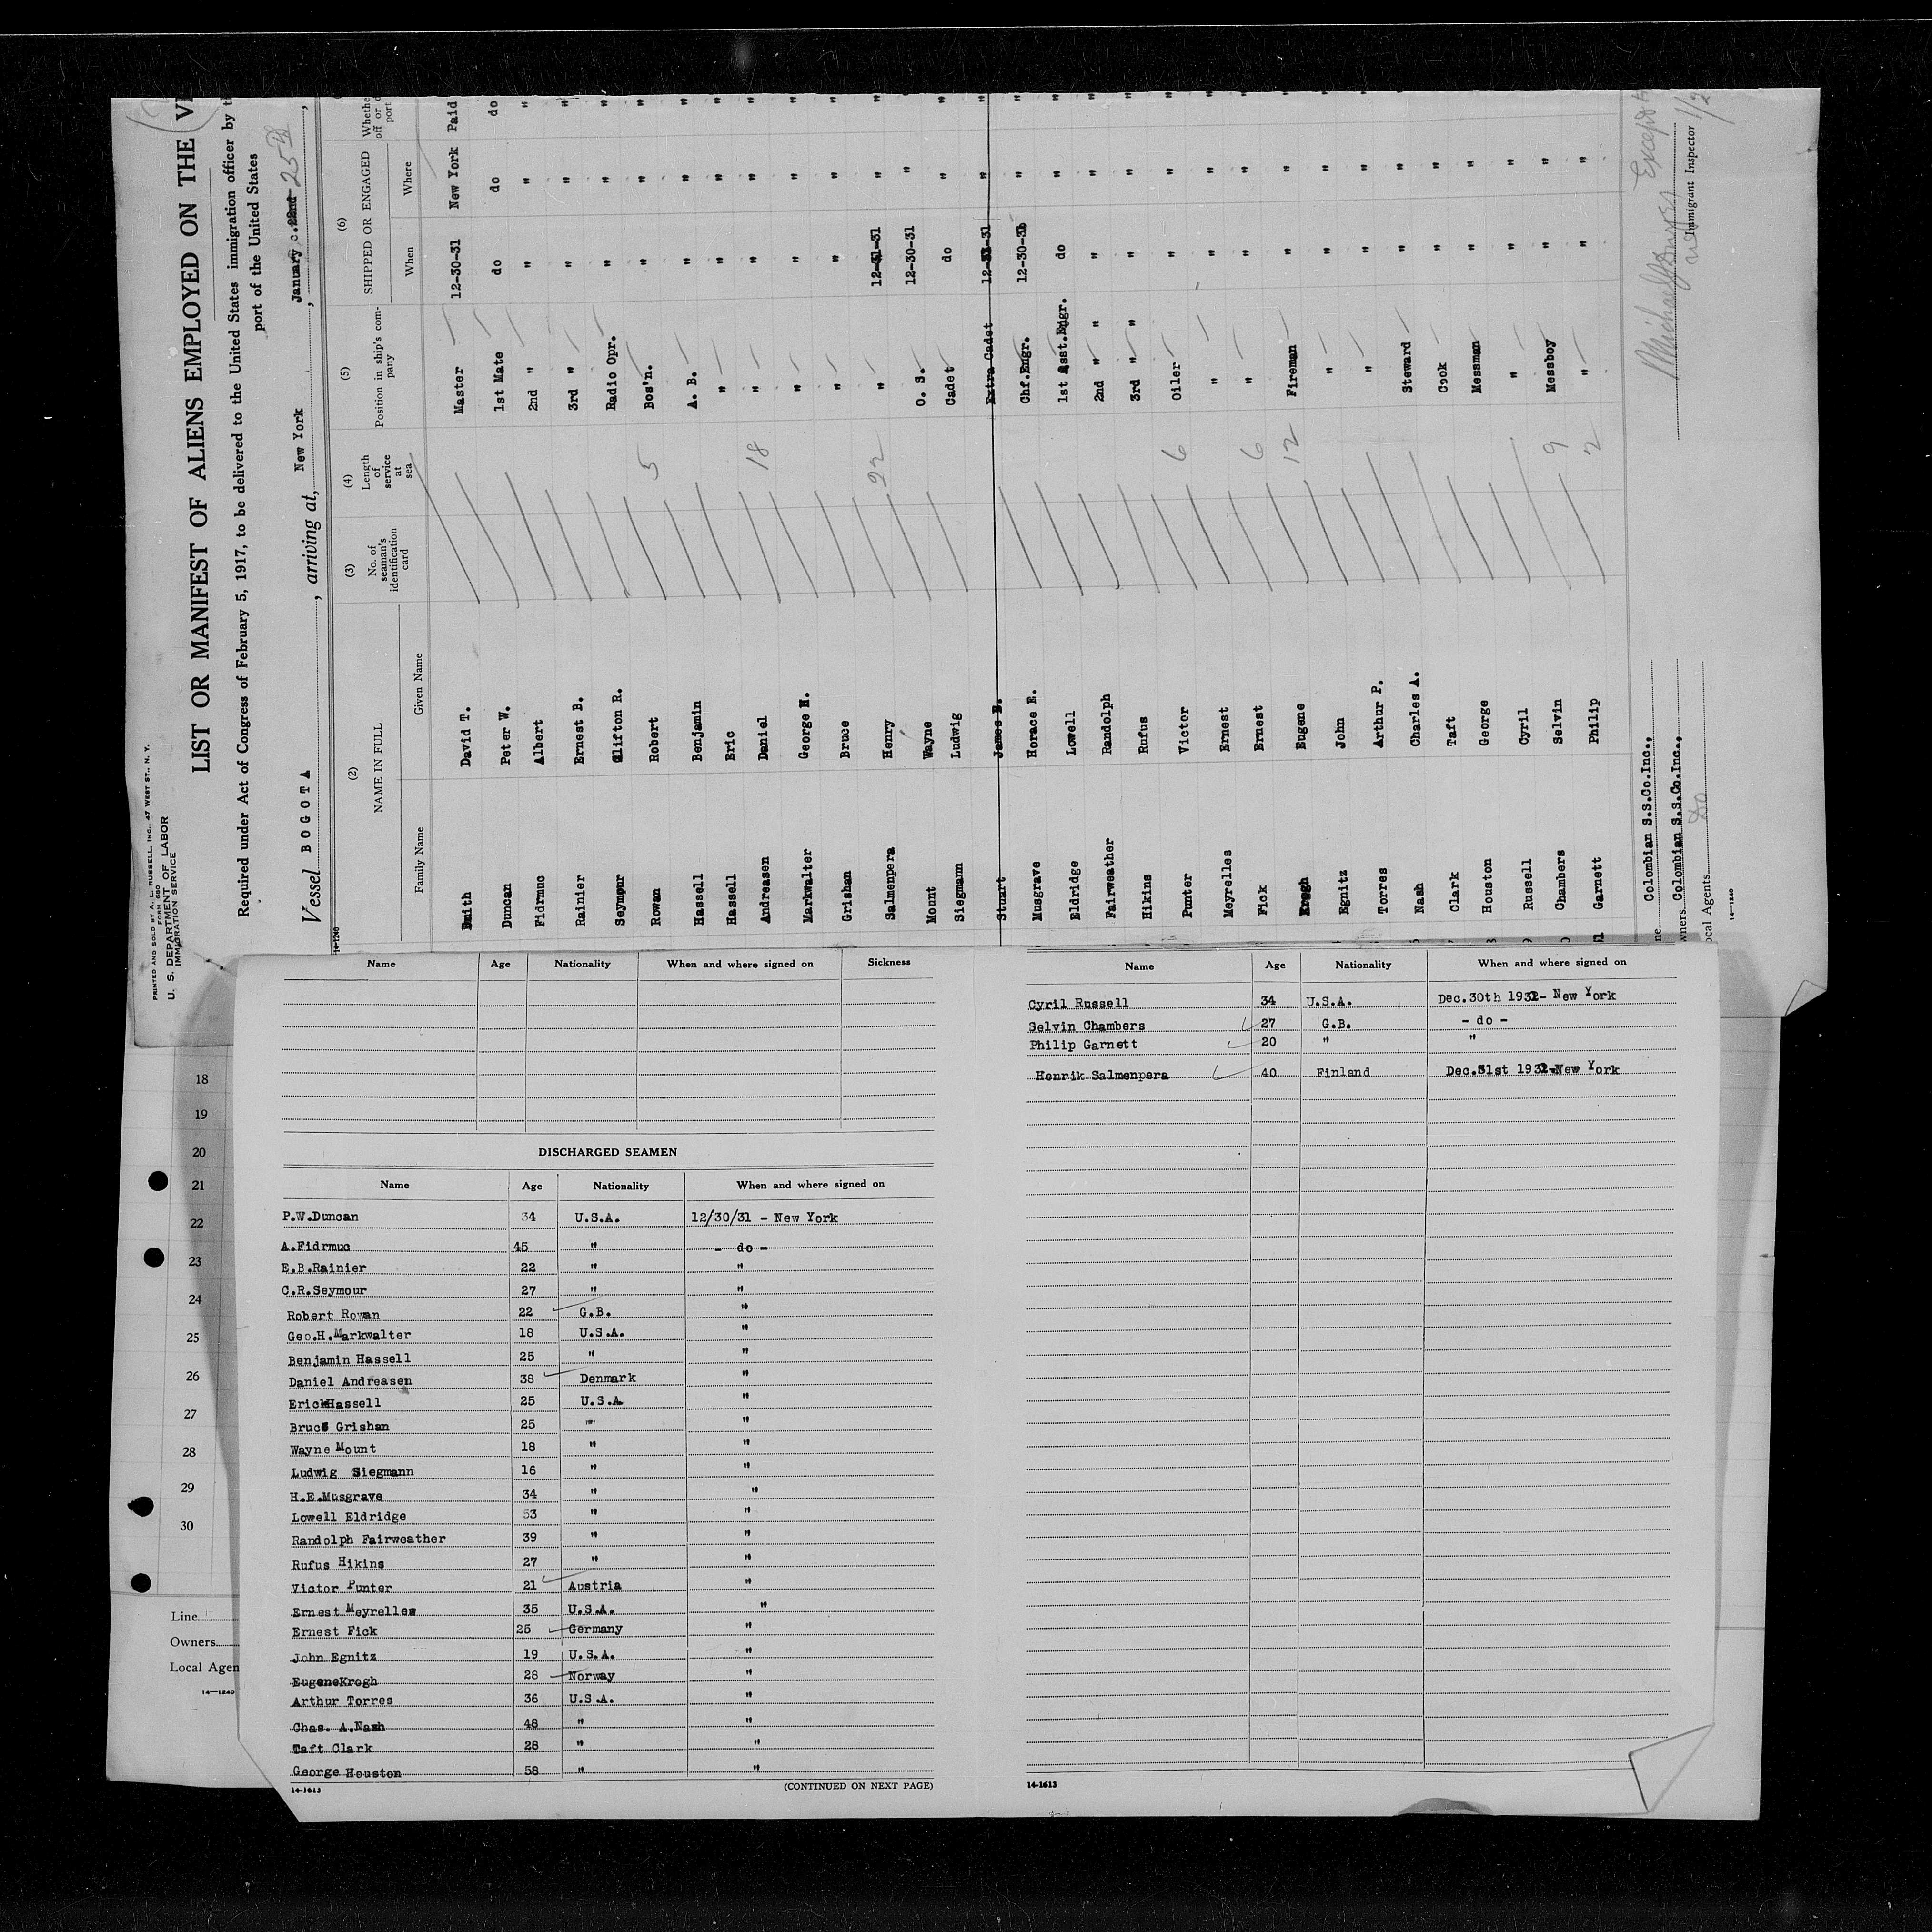 PRINTED AND SOLD BY A. L. RUSSELL, INC., 47 WEST ST., N. Y.
FORM 680
U. S. DEPARTMENT OF LABOR
IMMIGRATION SERVICE
LIST OR MANIFEST OF ALIENS EMPLOYED ON THE
Required under Act of Congress of February 5, 1917, to be delivered to the United States immigration officer by
port of the United States
Vessel BOGOTA, arriving at, New York, January 25th
14-1240
(2) (3) (4) (5) (6)
NAME IN FULL No. of seaman's identification card Length of service at sea Position in ship's company SHIPPED OR ENGAGED Whethe off or port
Family Name Given Name When Where
Smith David T. Master 12-30-31 New York Paid
Duncan Peter W. 1st Mate do do do
Fidrmuc Albert 2nd " " " "
Rainier Ernest B. 3rd " " " "
Seymour Clifton R. Radio Opr. " " "
Rowan Robert 5 Bos'n. " " "
Hassell Benjamin A. B. " " "
Hassell Eric " " " "
Andreasen Daniel 18 " " " "
Markwalter George H. " " " "
Grishan Bruce " " " "
Salmenpera Henry 22 " 12-31-31 " "
Mount Wayne O. S. 12-30-31 " "
Siegmann Ludwig Cadet do " "
Stuart James Extra Cadet 12-31-31 " "
Musgrave Horace E. Chf.Engr. 12-30-31 " "
Eldridge Lowell 1st Asst.Engr. do " "
Fairweather Randolph 2nd " " " " "
Hikins Rufus 3rd " " " " "
Punter Victor 6 Oiler " " "
Meyrelles Ernest " " " "
Fick Ernest 6 " " " "
Krogh Eugene 12 Fireman " " "
Egnitz John " " " "
Torres Arthur P. " " " "
Nash Charles A. Steward " " "
Clark Taft Cook " " "
Houston George Messman " " "
Russell Cyril " " " "
Chambers Selvin 9 Messboy " " "
Garnett Philip 2 " " " "
Colombian S.S.Co.Inc.,
Colombian S.S.Co.Inc.,
ocal Agents do
Immigrant Inspector
Except
14-1240
Name Age Nationality When and where signed on Sickness
DISCHARGED SEAMEN
Name Age Nationality When and where signed on
P.W.Duncan 34 U.S.A. 12/30/31 - New York
A.Fidrmuc 45 " - do -
E.B.Rainier 22 " "
C.R.Seymour 27 " "
Robert Rowan 22 G.B. "
Geo.H.Markwalter 18 U.S.A. "
Benjamin Hassell 25 " "
Daniel Andreasen 38 Denmark "
Eric Hassell 25 U.S.A. "
Bruce Grishan 25 " "
Wayne Mount 18 " "
Ludwig Siegmann 16 " "
H.E.Musgrave 34 " "
Lowell Eldridge 53 " "
Randolph Fairweather 39 " "
Rufus Hikins 27 " "
Victor Punter 21 Austria "
Ernest Meyrelles 35 U.S.A. "
Ernest Fick 25 Germany "
John Egnitz 19 U.S.A. "
EugeneKrogh 28 Norway "
Arthur Torres 36 U.S.A. "
Chas. A.Nash 48 " "
Taft Clark 28 " "
George Houston 58 " "
14-1613
(CONTINUED ON NEXT PAGE)
Name Age Nationality When and where signed on
Cyril Russell 34 U.S.A. Dec.30th 1931- New York
Selvin Chambers 27 G.B. - do -
Philip Garnett 20 " "
Henrik Salmenpera 40 Finland Dec.31st 1931-New York
14-1613
18
19
20
21
22
23
24
25
26
27
28
29
30
Line
Owners
Local Agen
14-1240